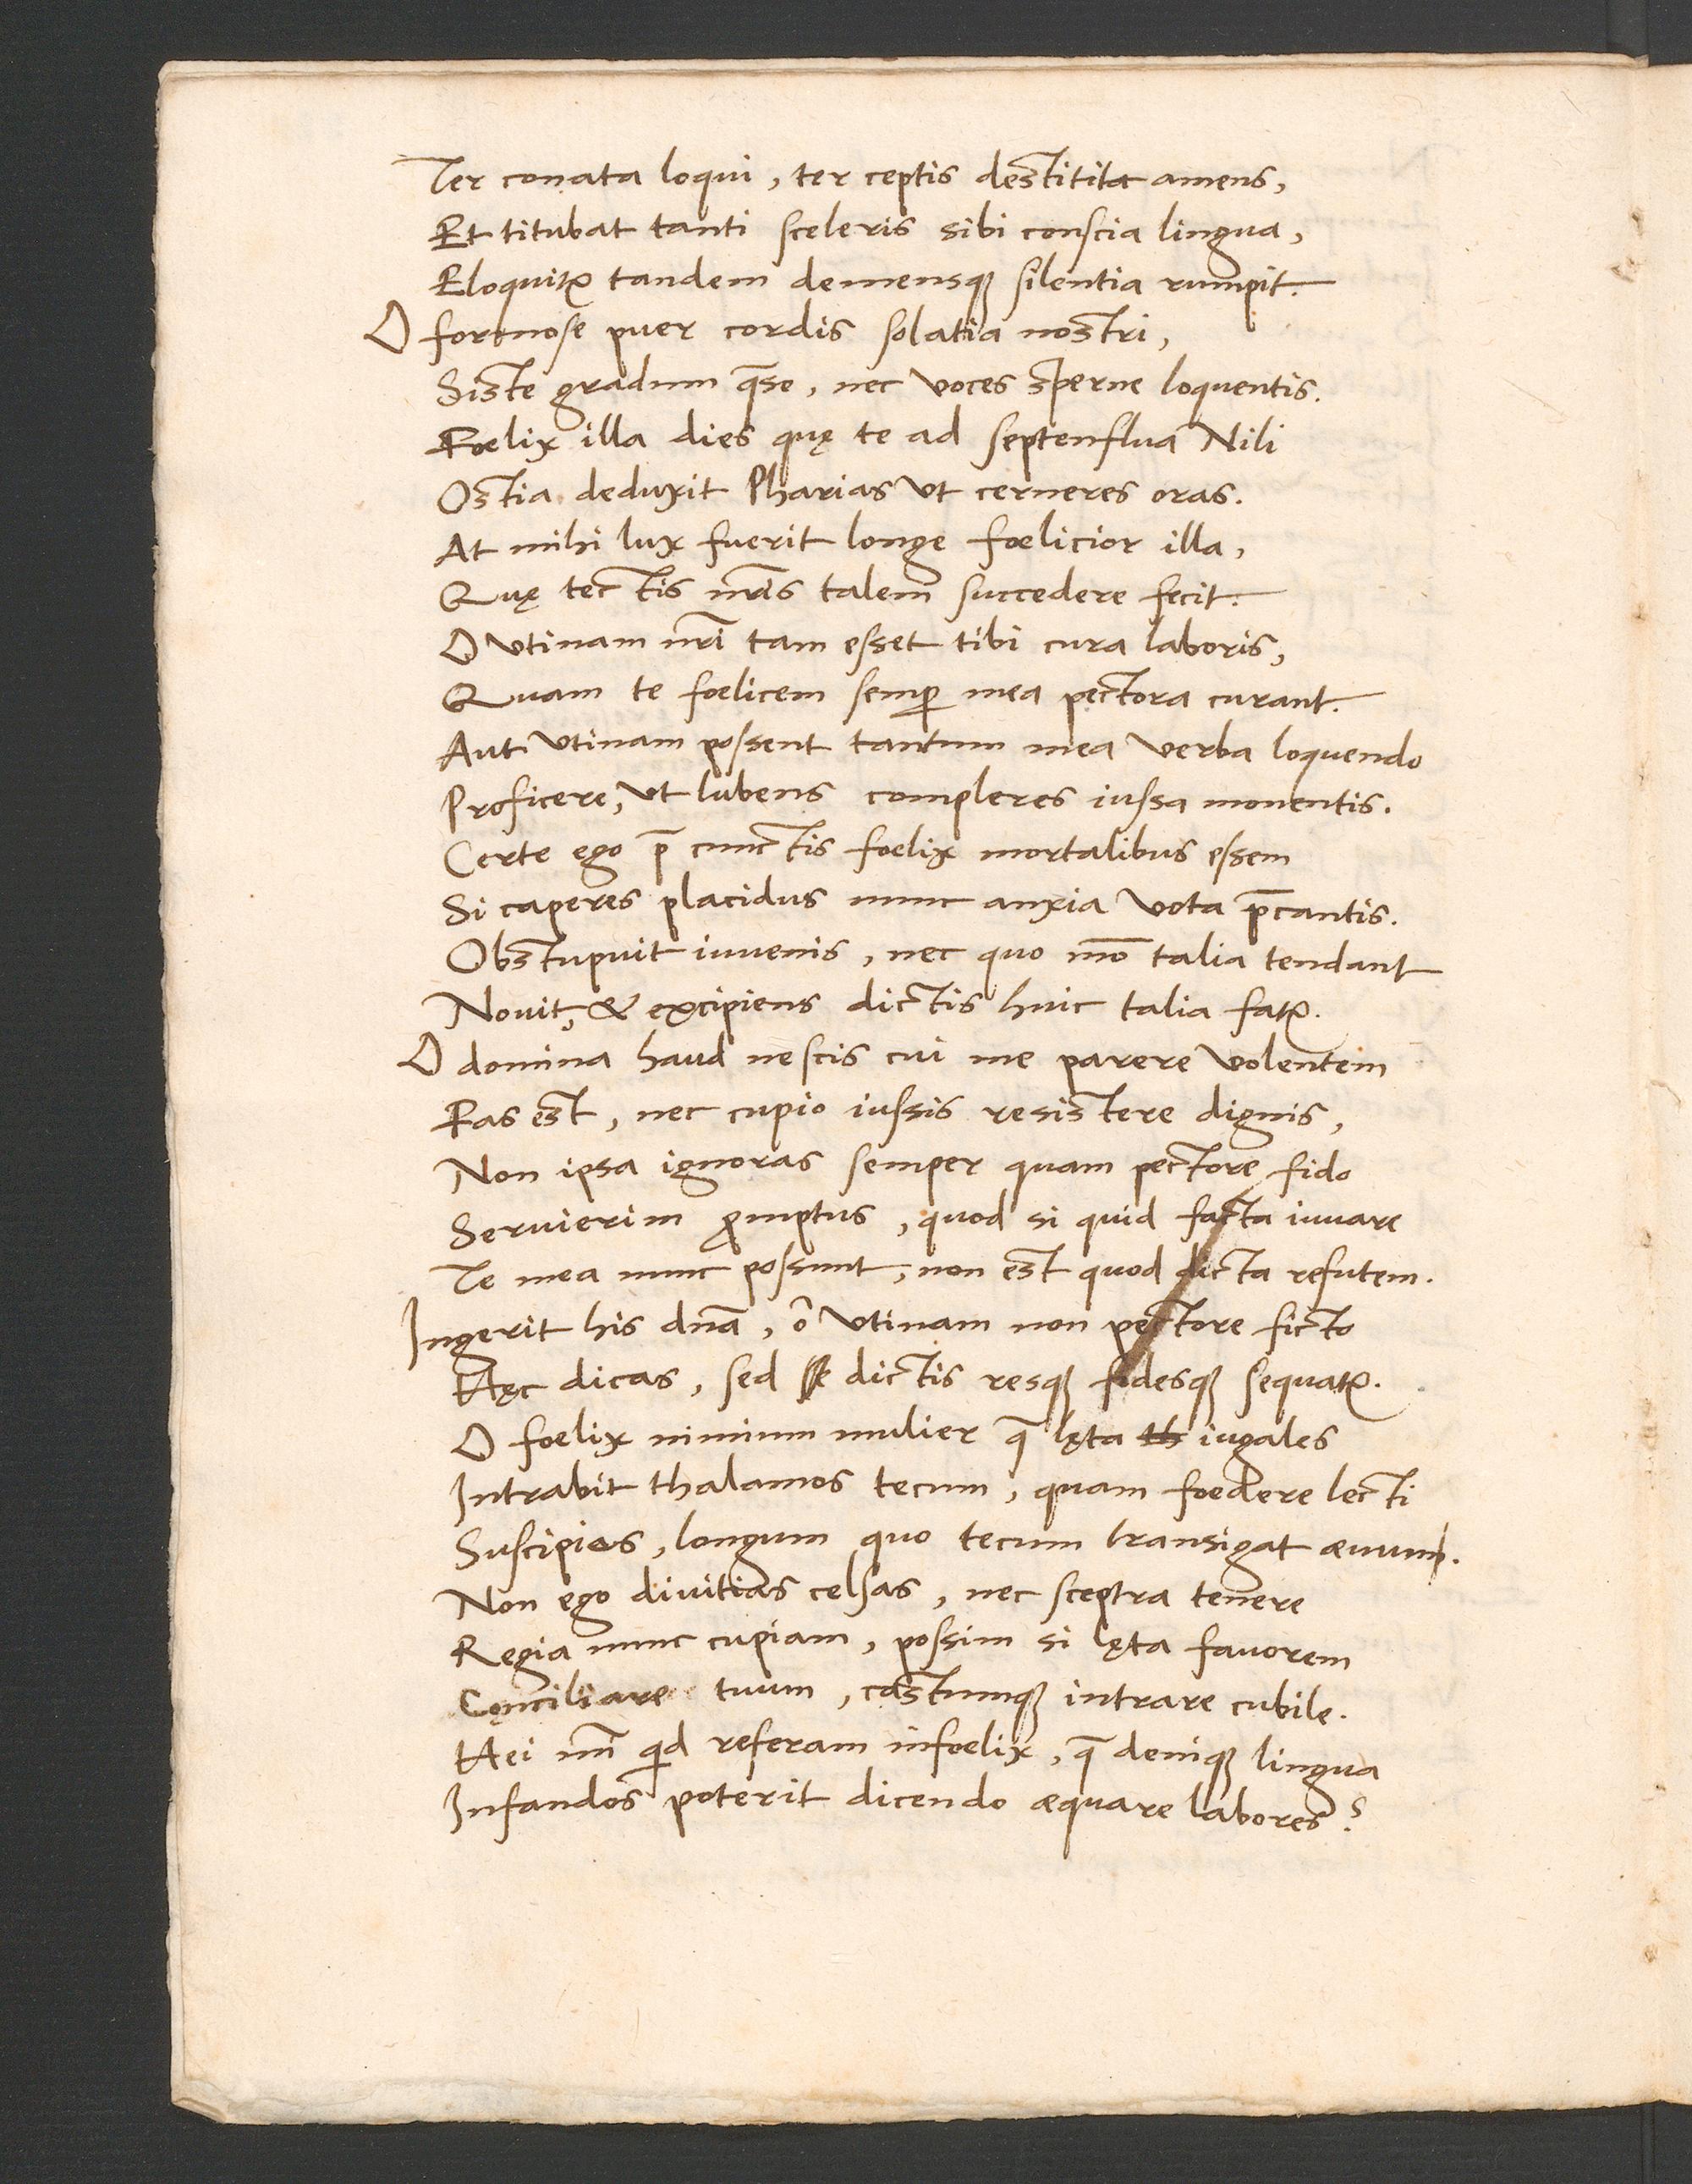 Ter conata loqui, ter ceptis destitit amens,
Et titubat tanti sceleris sibi conscia lingua,
Eloquitꝛ tandem demensqꝫ silentia rumpit.
O formose puer cordis solatia nostri,
Siste gradum q̄so, nec voces sperne loquentis.
Foelix illa dies quę te ad septenflua Nili
Ostia deduxit Pharias ut cerneres oras.
At mihi lux fuerit longe foelicior illa,
Quę tectis nr̄is talem succedere fecit.
O utinam nr̄i tam esset tibi cura laboris,
Quam te foelicem semꝑ mea pectora curant.
Aut utinam possent tantum mea verba loquendo
Proficere, ut lubens compleres iussa monentis.
Certe ego p̄ cunctis foelix mortalibus essem
Si caperes placidus nunc anxia vota p̄cantis.
Obstupuit iuvenis, nec quo mō talia tendant
Novit, & excipiens dictis huic talia fatꝛ.
O domina haud nescis cui me parere volentem
Fas est, nec cupio iussis resistere dignis,
Non ipsa ignoras semper quam pectore fido
Servierim ꝓmptus, quod si quid facta iuvare
Te mea nunc possunt, non est quod dicta refutem.
Ingerit his dn̄a, ô utinam non pectore ficto
Hęc dicas, sed dictis resqꝫ fidesqꝫ sequatꝛ.
O foelix nimium mulier q̄ lęta th iugales
Intrabit thalamos tecum, quam foedere lecti
Suscipies, longum quo tecum transigat aevum.
Non ego divitias celsas, nec sceptra tenere
Regia nunc cupiam, possim si lęta favorem
Conciliare tuum, castumqꝫ intrare cubile.
Hei mī qid referam infoelix, q̄ deniqꝫ lingua
Infandos poterit dicendo aequare labores?